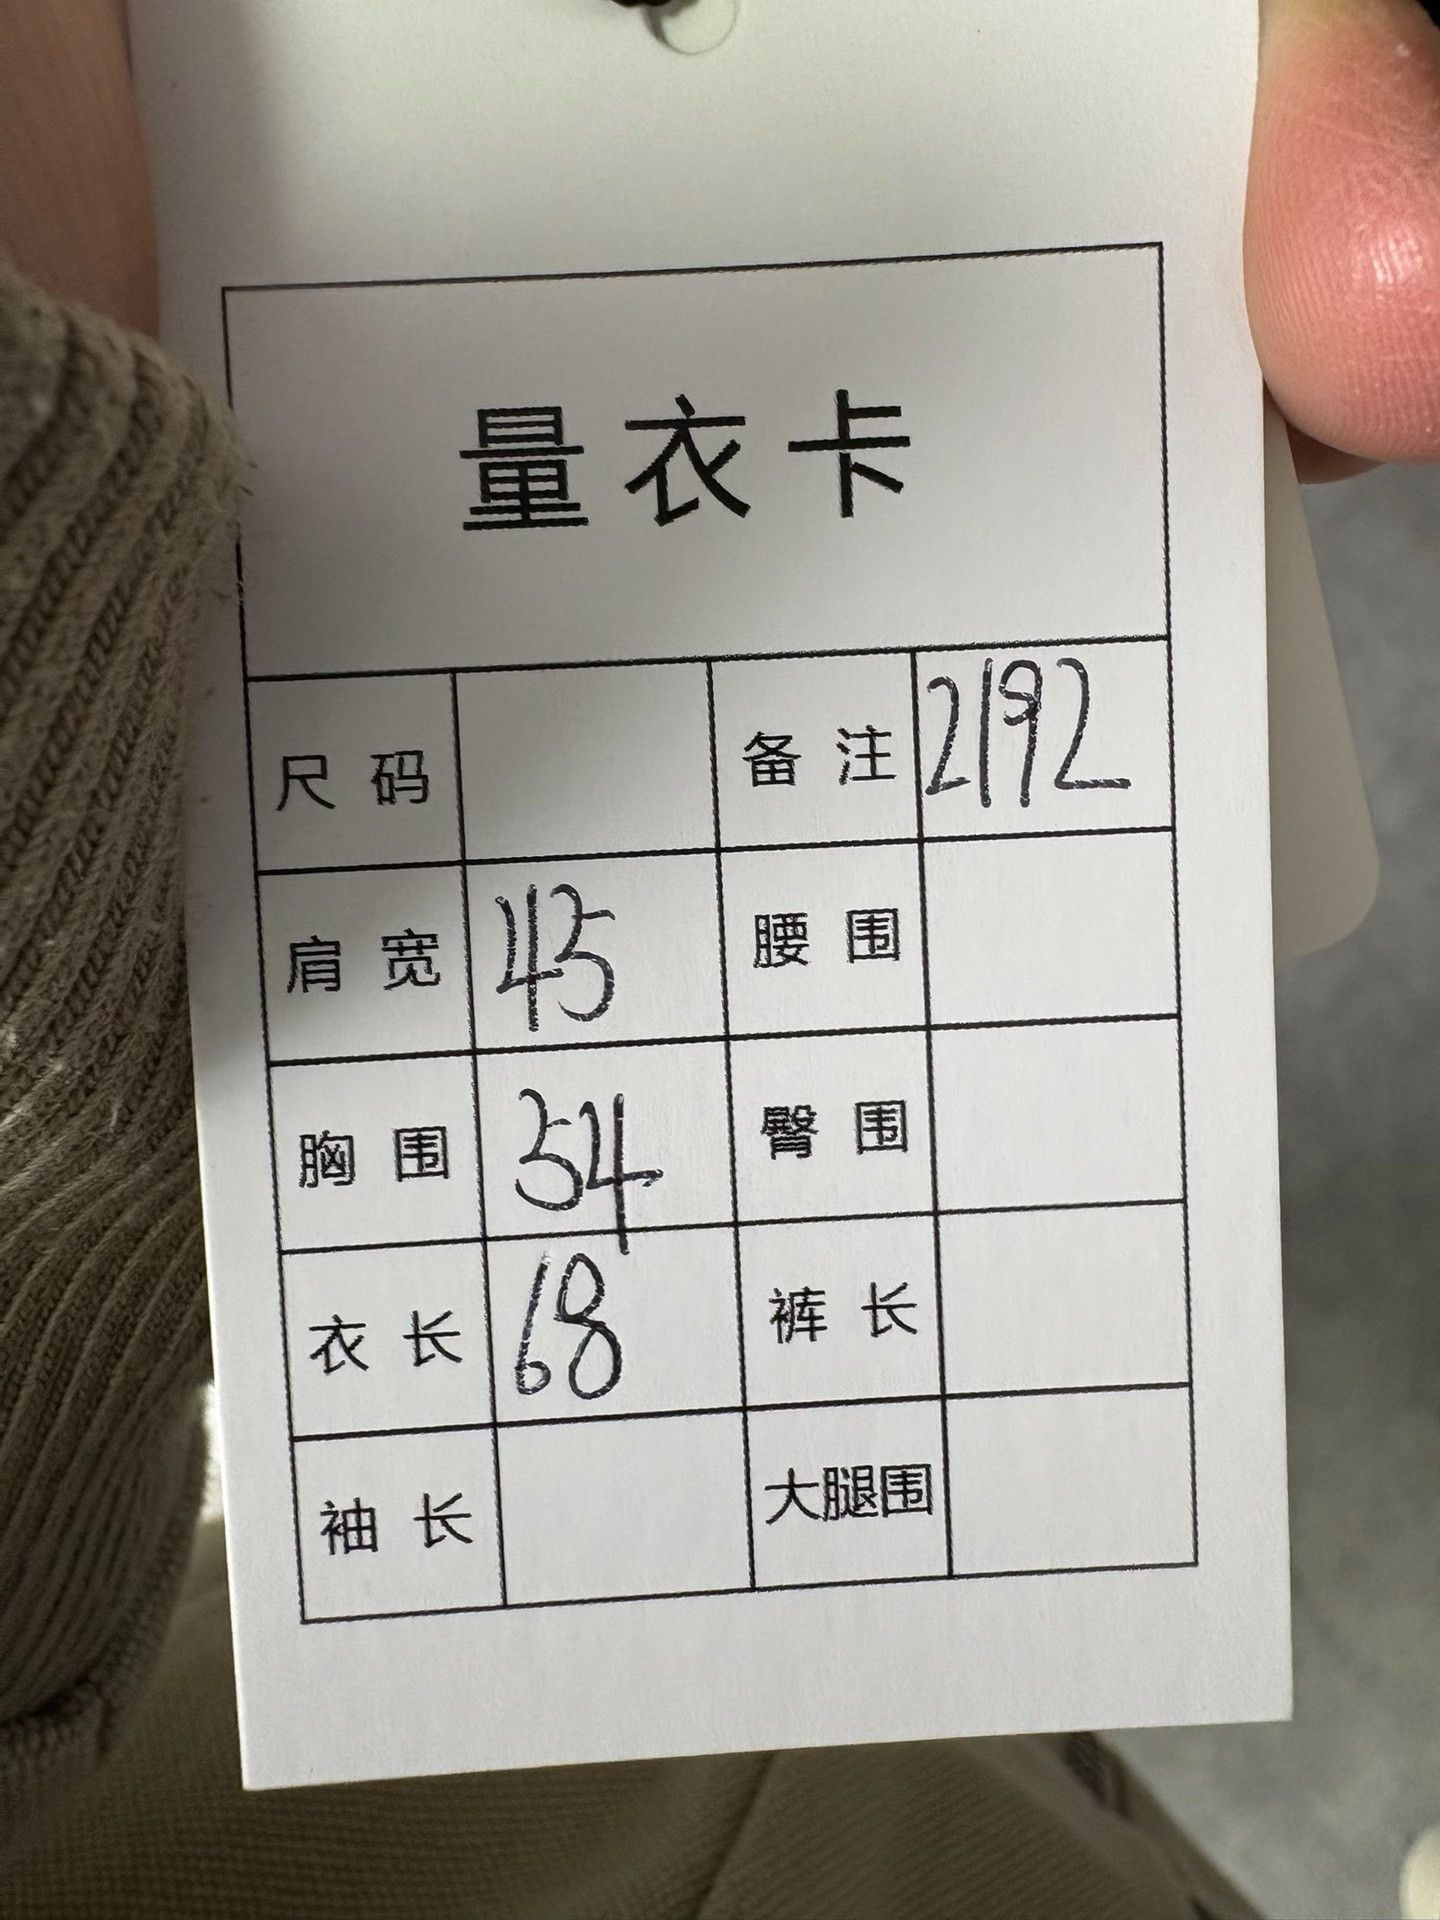 量衣卡
尺码 备注 2192
肩宽 45 腰围
胸围 54 臀围
衣长 68 裤长
袖长 大腿围